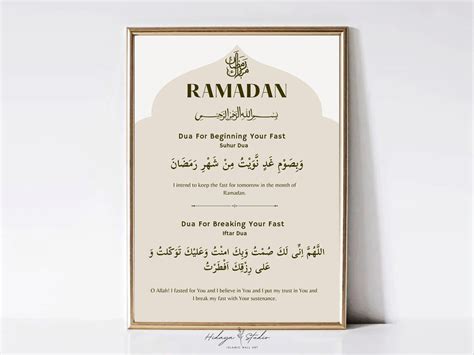 رمضان مبارك
RAMADAN
بسم الله الرحمن الرحيم
Dua For Beginning Your Fast
Suhur Dua
وَبِصَوْمِ غَدٍ نَّوَيْتُ مِنْ شَهْرِ رَمَضَانَ
I intend to keep the fast for tomorrow in the month of
Ramadan.
Dua For Breaking Your Fast
Iftar Dua
اللَّهُمَّ اِنِّى لَكَ صُمْتُ وَبِكَ امَنْتُ وَعَلَيْكَ تَوَكَّلْتُ وَ
عَلى رِزْقِكَ اَفْطَرْتُ
O Allah! I fasted for You and I believe in You and I put my trust in You and
I break my fast with Your sustenance.
Hidaya Studio
ISLAMIC WALL ART